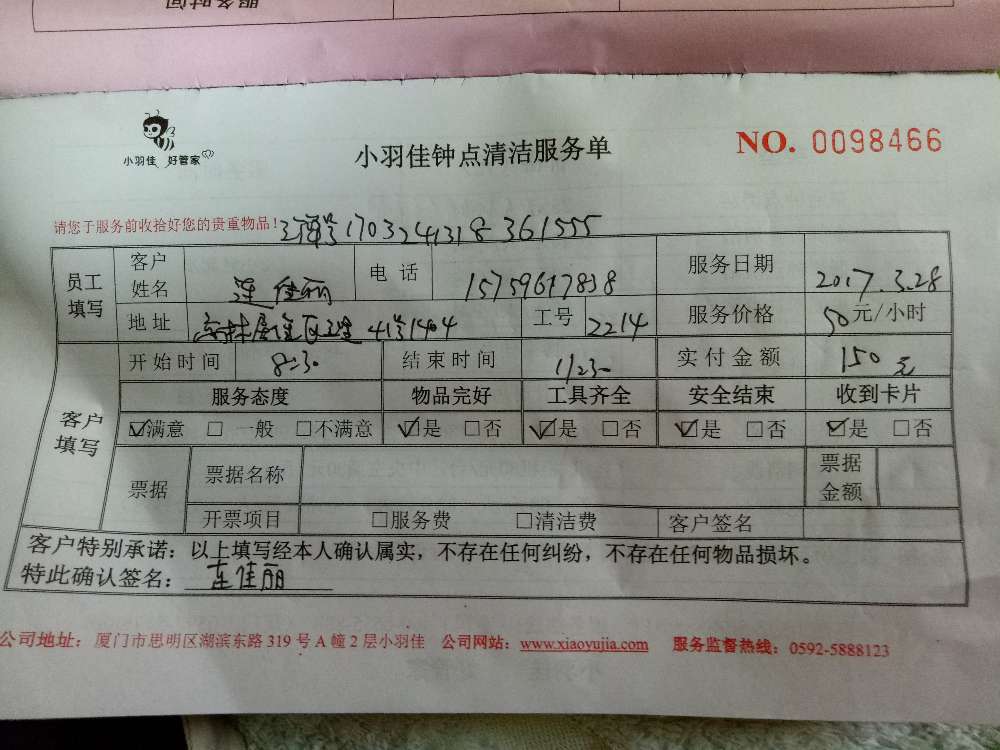 服务时间
小羽佳 好管家
小羽佳钟点清洁服务单
NO. 0098466
请您于服务前收拾好您的贵重物品!
1703241318361555
员工填写 客户姓名 连佳丽 电话 15759617838 服务日期 2017.3.28
地址 41号1404 工号 2214 服务价格 50元/小时
客户填写 开始时间 8:30 结束时间 11:30 实付金额 150元
服务态度 物品完好 工具齐全 安全结束 收到卡片
☑满意 □一般 □不满意 ☑是 □否 ☑是 □否 ☑是 □否 ☑是 □否
票据 票据名称 票据金额
开票项目 □服务费 □清洁费 客户签名
客户特别承诺：以上填写经本人确认属实，不存在任何纠纷，不存在任何物品损坏。
特此确认签名：连佳丽
公司地址：厦门市思明区湖滨东路 319 号 A 幢 2 层小羽佳 公司网站：www.xiaoyujia.com 服务监督热线：0592-5888123